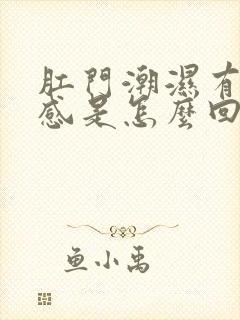 肛門潮濕有
感是怎麼回
鱼小禹